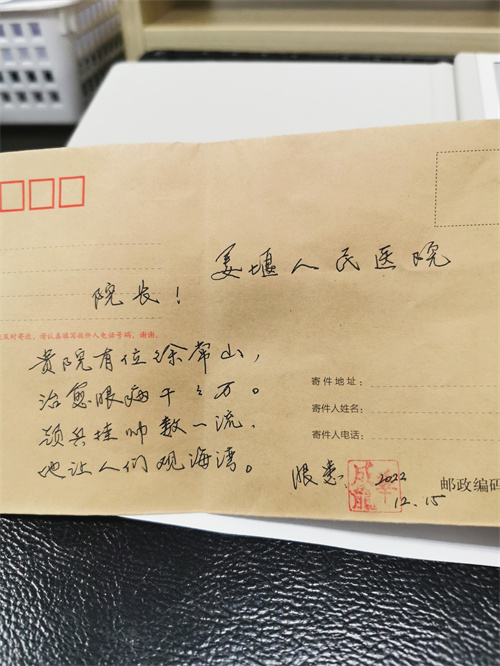 姜堰人民医院
院长！
及时寄达，请认真填写收件人电话号码，谢谢。
贵院有位徐常山，
治愈眼病千千万。
领兵挂帅数一流，
他让人们观海湾。
寄件地址：
寄件人姓名：
寄件人电话：
眼患
2022
12.15
邮政编码